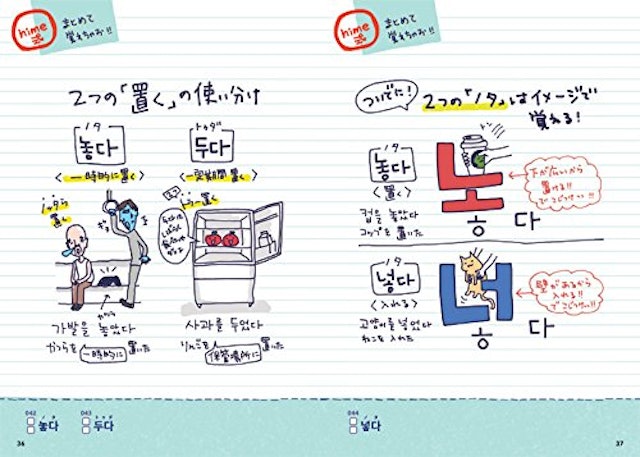 hime
まとめて
覚えちゃお!!
2つの「置く」の使い分け
ノタ
놓다
<一時的に置く>
トゥダ
두다
<一定期間置く>
置く
가발을 놓았다
かつらを一時的に置いた
사과를 두었다
りんごを保管場所に置いた
042
놓다
043
두다
36
hime
まとめて
覚えちゃお!!
ついでに!
2つの「ノタ」はイメージで
覚える!
ノタ
놓다
<置く>
컵을 놓았다
コップを置いた
노
ㅎ 다
下が広いから
置ける!!
でこじつけ!!
ノタ
넣다
<入れる>
고양이를 넣었다
ねこを入れた
너
ㅎ 다
壁があるから
入れる!!
でこじつけ!!
044
넣다
37